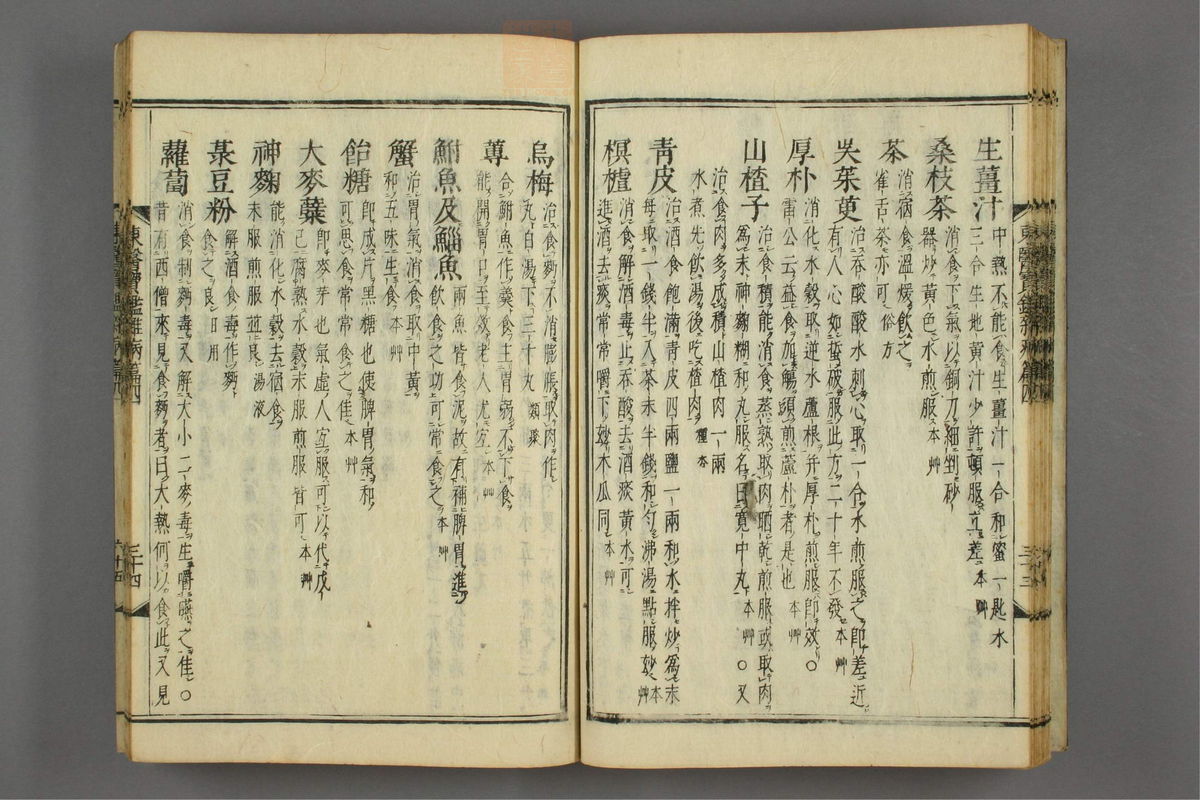 生薑汁 中熱不能食生薑汁一合和蜜一匙水
三合生地黄汁少許頓服立差 本艸
桑枝茶 消食下氣以銅刀細剉砂
器炒黄色水煎服 本艸
茶 消宿食溫煖飲之
雀舌茶亦可 俗方
吳茱萸 治吞酸酸水刺心取一合水煎服之即差近
有人心如蜇破服此方二十年不發 本艸
厚朴 消化水穀取逆水蘆根并厚朴煎服即效○
雷公云益食加觴須煎蘆朴者是也 本艸
山楂子 治食積能消食蒸熟取肉晒乾煎服或取肉
爲末神麴糊和丸服名曰寛中丸 本艸 ○又
治食肉多成積山楂肉一兩
水煮先飲湯後吃楂肉 種杏
青皮 治酒食飽滿青皮四兩鹽一兩和水拌炒爲末
每取一錢半入茶末半錢和勻沸湯點服妙 本艸
榠樝 消食解酒毒止吞酸去酒痰黄水可
進酒去痰常嚼下妙木瓜同 本艸
烏梅 治食麪不消膨脹取肉作
丸白湯下三十丸 類聚
蓴 合鮒魚作羹食主胃弱不下食
能開胃口至效老人尤宜 本艸
鮒魚及鯔魚 兩魚皆食泥故有補脾胃進
飲食之功可常食之 本艸
蟹 治胃氣消食取中黄
和五味生食 本艸
飴糖 即成片黑糖也使脾胃氣和
可思食常常食之佳 本艸
大麥蘗 即麥芽也氣虛人宜服可以代戊
己腐熟水穀末服煎服皆可 本艸
神麴 能消化水穀去宿食
末服煎服並良 湯液
菉豆粉 解酒食毒作麪
食之良 日用
蘿蔔 消食制麪毒又解大小二麥毒生嚼嚥之佳○
昔有西僧來見食麪者曰大熱何以食此又見
東醫寶鑑雜病篇四
三十四